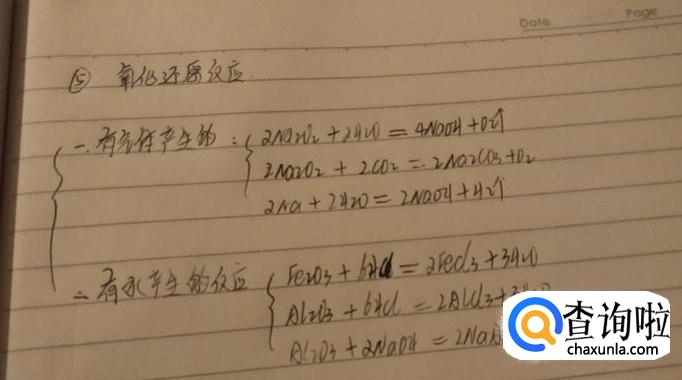 Date Page
⑤ 氧化还原反应
一.有气体产生的: 2Na2O2+2H2O=4NaOH+O2↑
2Na2O2+2CO2=2Na2CO3+O2
2Na+2H2O=2NaOH+H2↑
二.有水产生的反应 Fe2O3+6HCl=2FeCl3+3H2O
Al2O3+6HCl=2AlCl3+3H2O
Al2O3+2NaOH=2NaA
查询啦
chaxunla.com